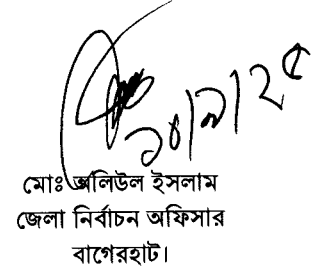 ১০/৯/২৫
মোঃ অলিউল ইসলাম
জেলা নির্বাচন অফিসার
বাগেরহাট।